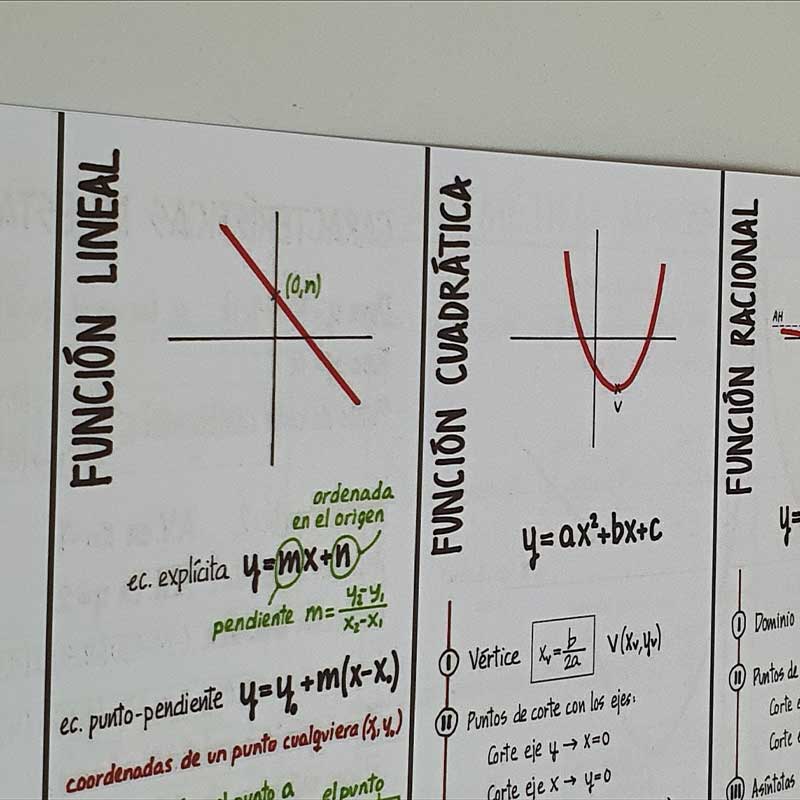 FUNCIÓN LINEAL
(0,n)
ordenada
en el origen
ec. explícita y=mx+n
pendiente m=\frac{y_2-y_1}{x_2-x_1}
ec. punto-pendiente y=y_0+m(x-x_0)
coordenadas de un punto cualquiera (x_0,y_0)
punto a el punto
FUNCIÓN CUADRÁTICA
V
y=ax²+bx+c
I Vértice x_v=\frac{b}{2a} V(x_v,y_v)
II Puntos de corte con los ejes:
Corte eje y → x=0
Corte eje x → y=0
FUNCIÓN RACIONAL
AH
y=
I Dominio
II Puntos de
Corte
Corte
III Asíntotas